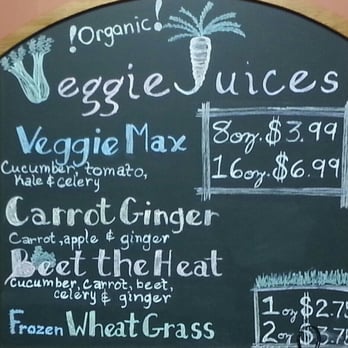 !Organic!
Veggie Juices
Veggie Max
8oz. $3.99
16oz. $6.99
Cucumber, tomato,
Kale & celery
Carrot Ginger
Carrot, apple & ginger
Beet the Heat
Cucumber, carrot, beet,
celery & ginger
Frozen Wheat Grass
1oz $2.75
2oz $3.75